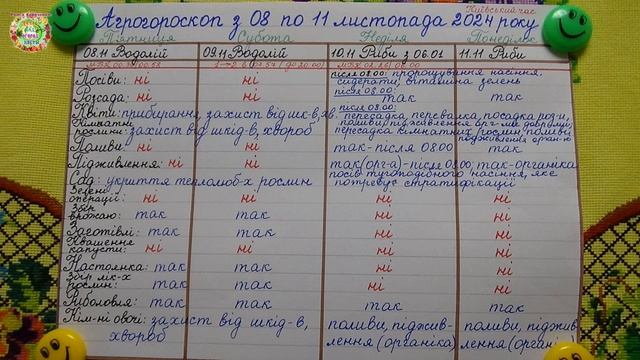 Київський час
Агрогороскоп з 08 по 11 листопада 2024 року
П'ятниця Субота Неділя Понеділок
08.11 Водолій 09.11 Водолій 10.11 Риби з 06.01 11.11 Риби
Посіви: ні ні після 08.00: пророщування насіння, сидерати, вітамінна зелень
Розсада: ні ні після 08.00: так так
Квіти: прибирання, захист від шк-в, хв. після 08.00: пересадка, перевалка, посадка
Кімнатні рослини: захист від шкід-в, хвороб пересадка кімнатних рослин, поливи
Поливи: ні ні так - після 08.00 так
Підживлення: ні ні так (орг-а) - після 08.00; так - органіка
Сад: укриття теплолюб-х рослин посів тугоподібного насіння, яке потребує стратифікації
Зелені операції: ні ні ні ні
Збір врожаю: так так ні ні
Заготівлі: так так ні ні
Квашення капусти: ні ні ні ні
Настоянка: так так ні ні
Збір лік-х рослин: так так ні ні
Риболовля: так так так так
Кім-ні овочі: захист від шкід-в, хвороб поливи, піджив-лення (органіка) поливи, піджив-лення (органі